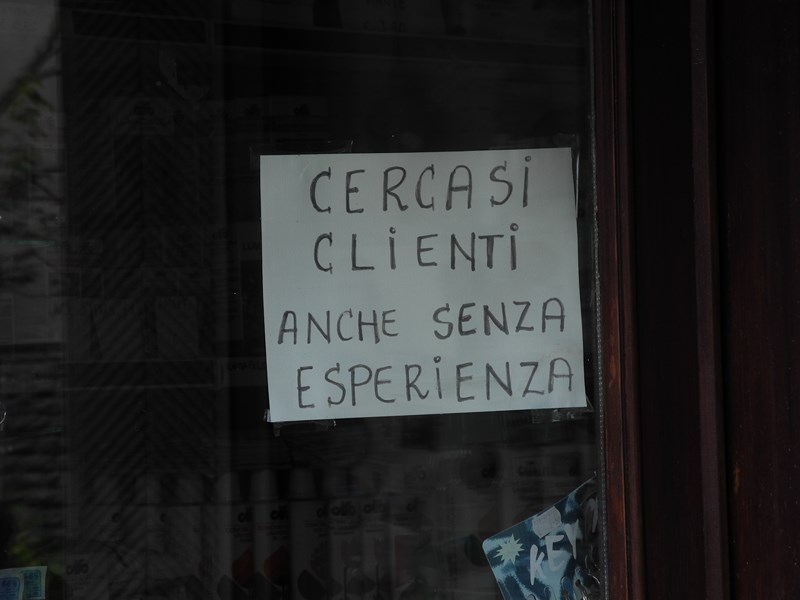 CERCASI
CLIENTI
ANCHE SENZA
ESPERIENZA
KEY